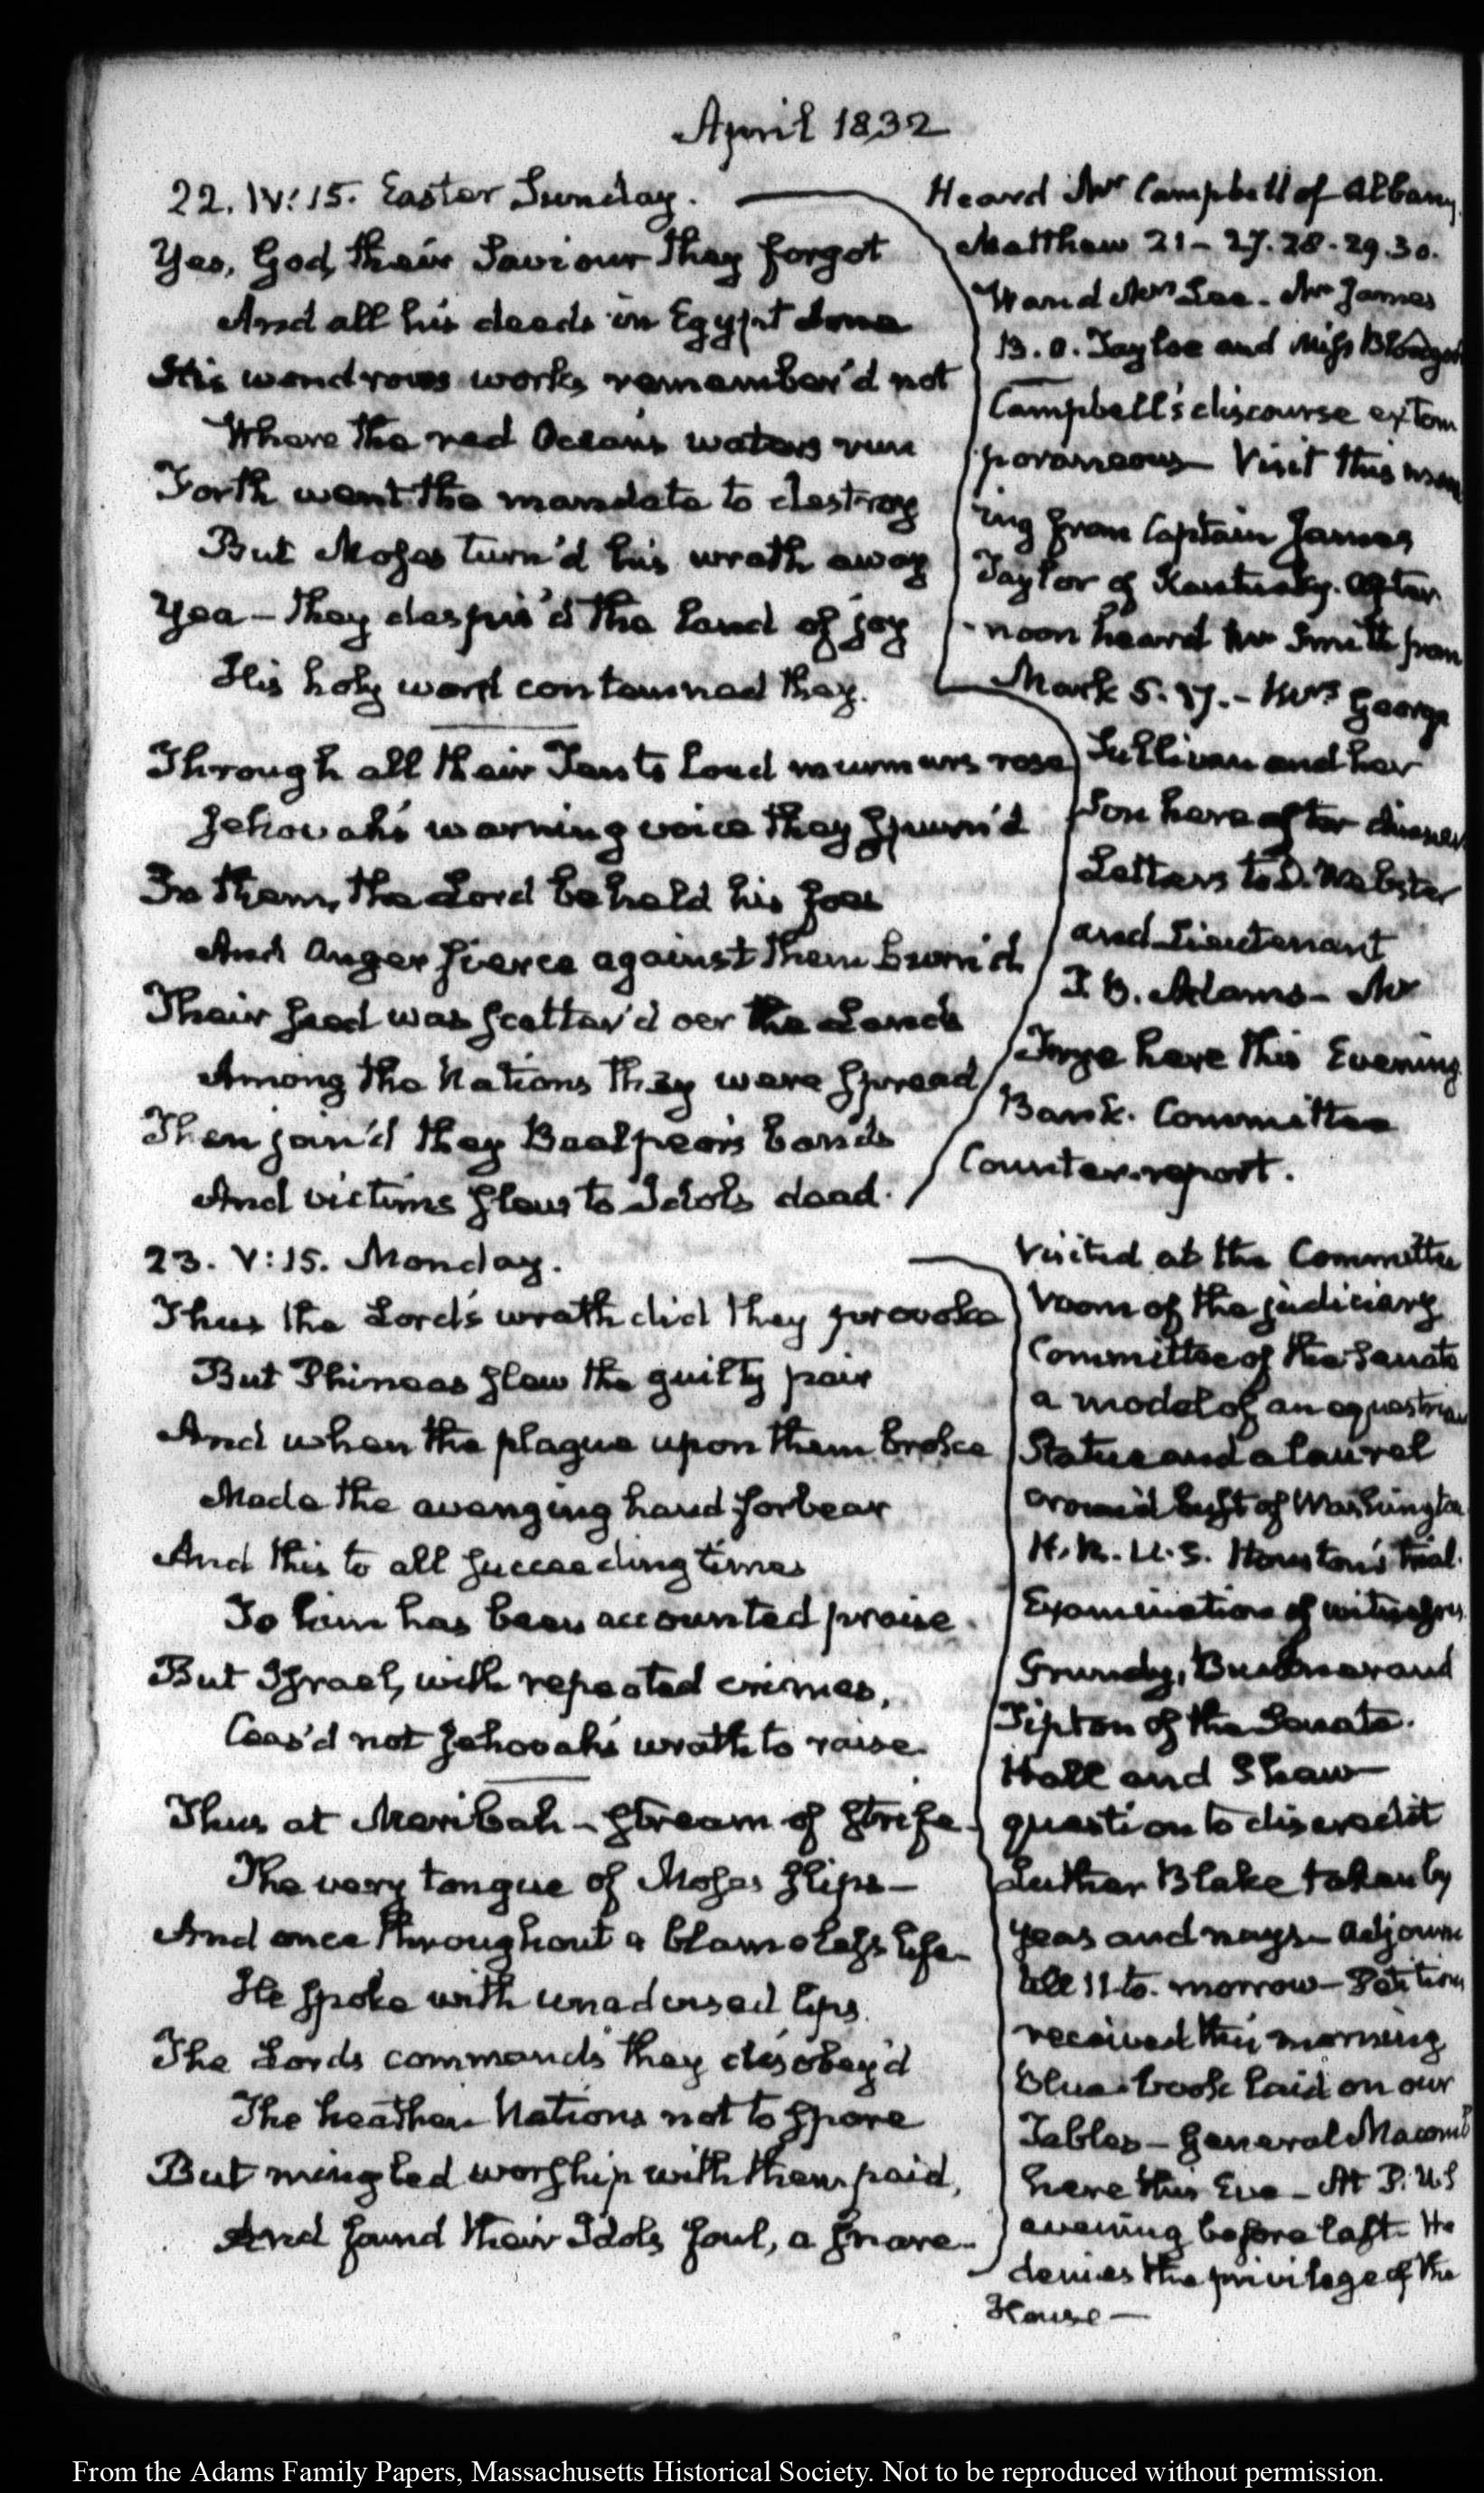 April 1832
22. IV:15. Easter Sunday.
Yes, God, their Saviour they forgot
And all his deeds in Egypt done
His wondrous works remember'd not
Where the red Ocean's waters run
Forth went the mandate to destroy
But Moses turn'd his wrath away
Yea - they despis'd the land of joy
His holy word contemned they.
Through all their Tents loud murmurs rose
Jehovah's warning voice they spurn'd
In them, the Lord beheld his foes
And Anger fierce against them burn'd
Their seed was scatter'd oer the Lands
Among the Nations they were spread
Then join'd they Baalpeor's bands
And victims slew to Idols dead.
Heard Mr Campbell of Albany.
Matthew 21 - 27. 28. 29. 30.
Ward Mrs Lee - Mr James
B. O. Tayloe and Miss
Campbell's discourse extem
poraneous - Visit this morn
ing from Captain James
Taylor of Kentucky. After
noon heard Mr Smith from
Mark 5. 17. - Mrs George
Sullivan and her
Son here after dinner
Letters to D. Webster
and Lieutenant
J. B. Adams - Mr
Frye here this Evening
Bank. Committee
Counter-report.
23. V:15. Monday.
Thus the Lord's wrath did they provoke
But Phineas slew the guilty pair
And when the plague upon them broke
Made the avenging hand forbear
And this to all succeeding times
To him has been accounted praise.
But Israel, with repeated crimes,
Ceas'd not Jehovah's wrath to raise.
Thus at Meribah - stream of strife -
The very tongue of Moses slips -
And once throughout a blameless life -
He spoke with unadvised lips.
The Lords commands they disobey'd
The heathen Nations not to spare
But mingled worship with them paid,
And found their Idols foul, a snare -
Visited at the Committee
room of the judiciary
Committee of the Senate
a model of an equestrian
Statue and a laurel
crown'd bust of Washington
H. R. U. S. Houston's trial.
Examination of witnesses
Grundy, Buckner and
Tipton of the Senate.
Hall and Shaw
question to discredit
Luther Blake taken by
yeas and nays - Adjourn
till 11 to-morrow - Petition
received this morning
Blue-book laid on our
Tables - General Macomb
here this Eve - At P. U S
evening before last. He
denies the privilege of the
House -
From the Adams Family Papers, Massachusetts Historical Society. Not to be reproduced without permission.